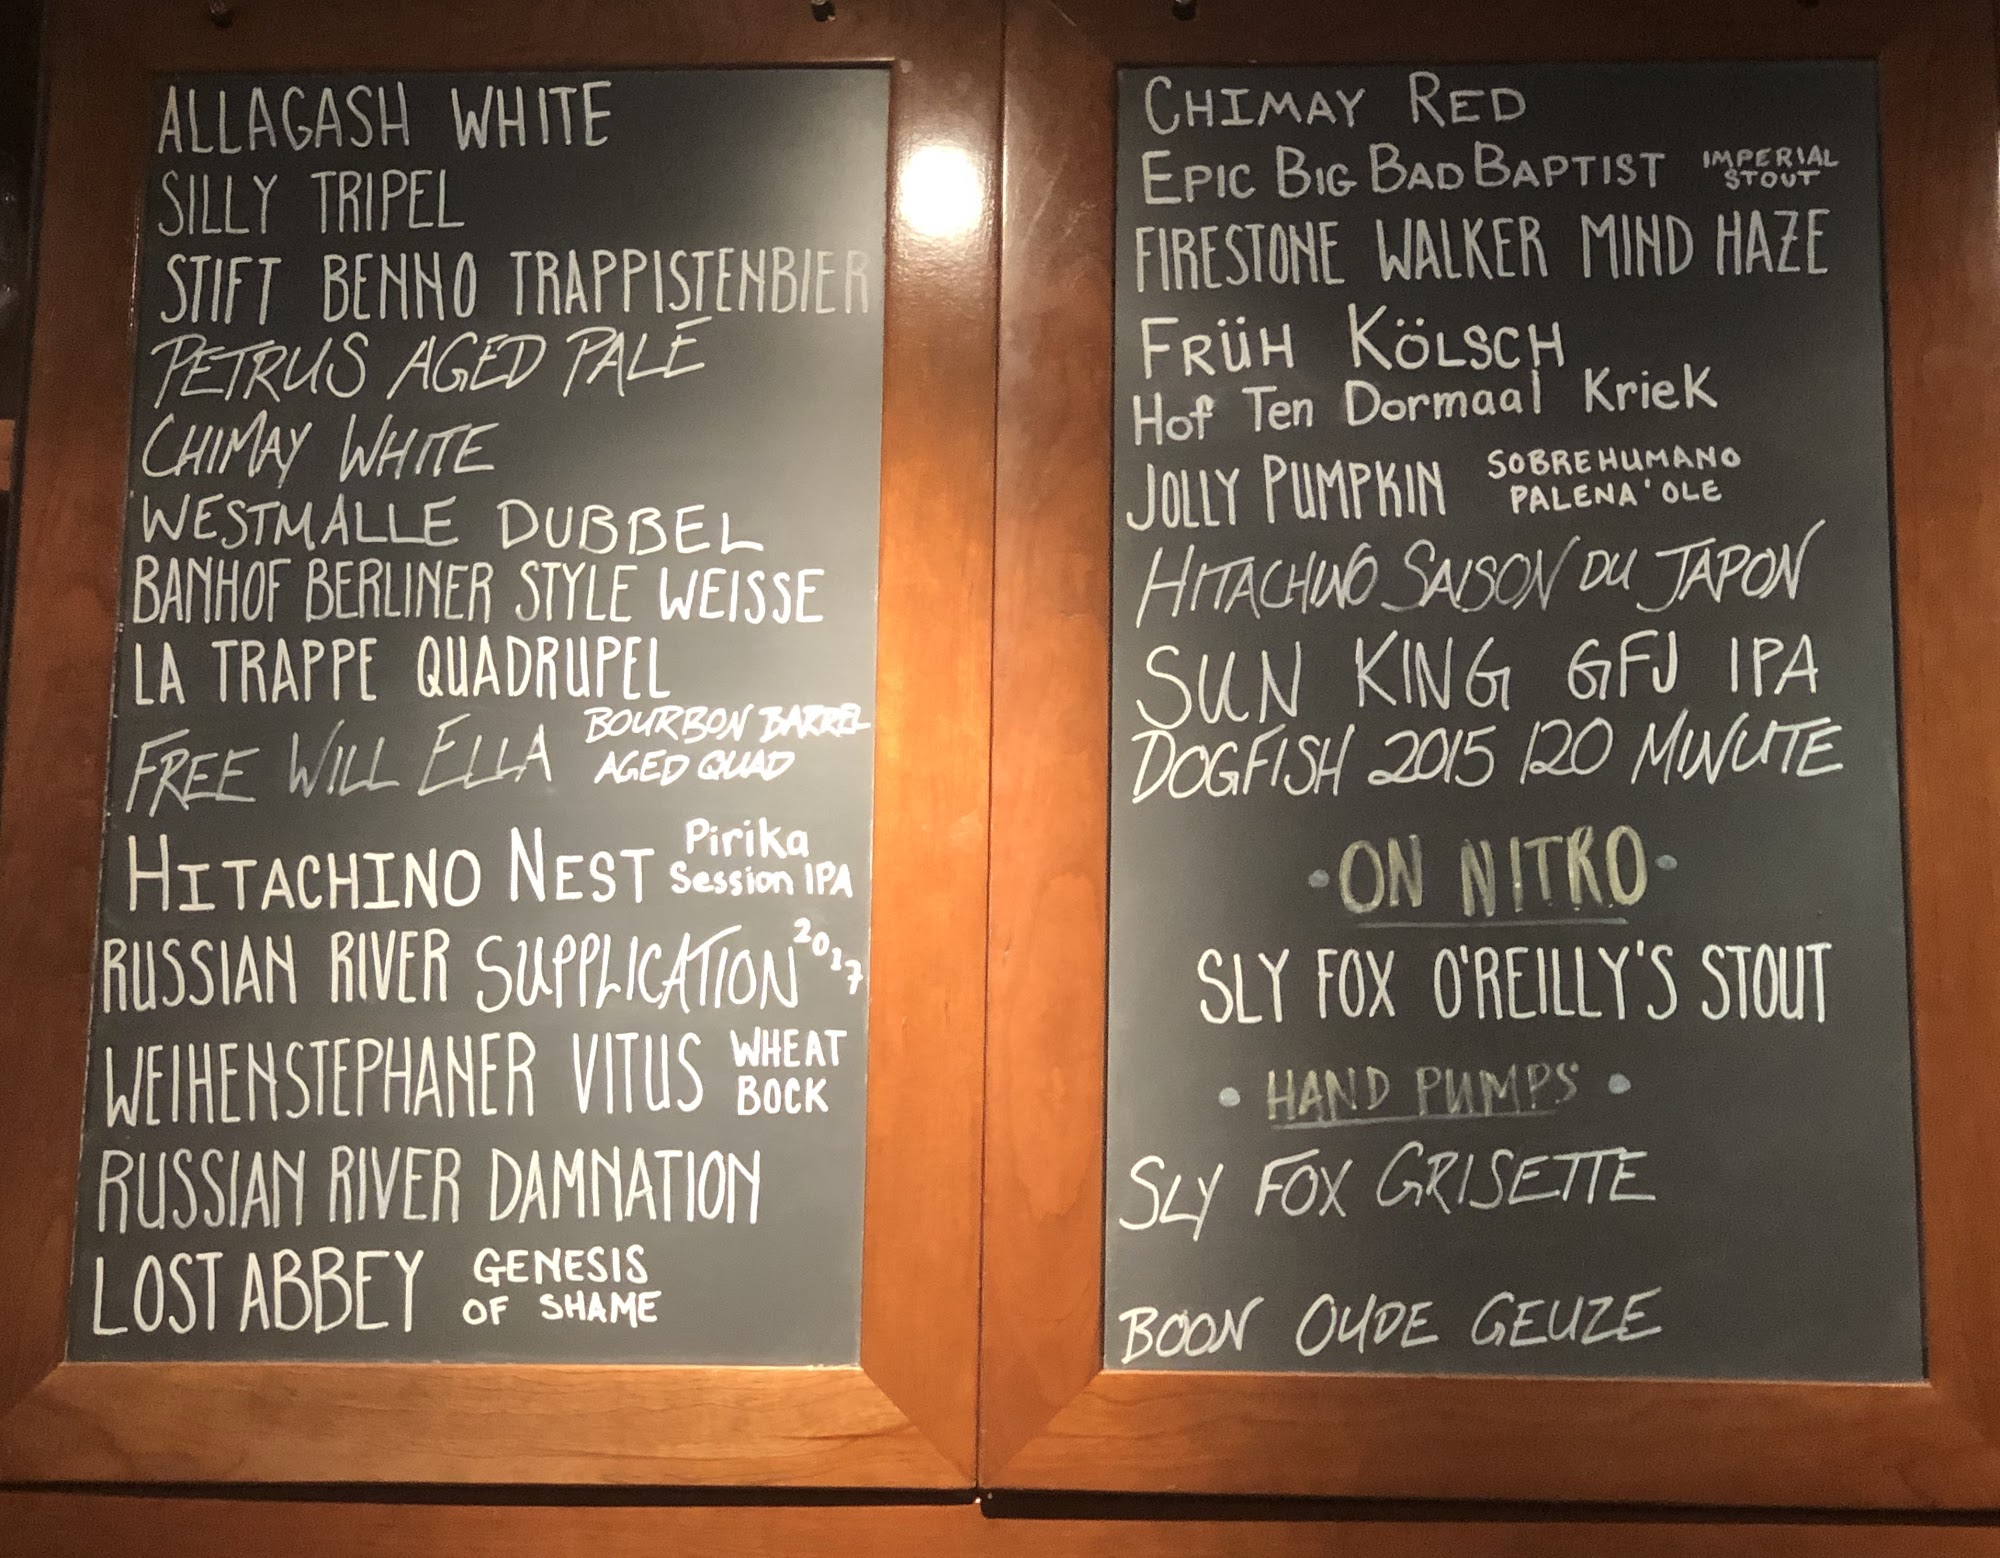 ALLAGASH WHITE
SILLY TRIPEL
STIFT BENNO TRAPPISTENBIER
PETRUS AGED PALE
CHIMAY WHITE
WESTMALLE DUBBEL
BANHOF BERLINER STYLE WEISSE
LA TRAPPE QUADRUPEL
FREE WILL ELLA BOURBON BARREL
AGED QUAD
HITACHINO NEST Pirika
Session IPA
RUSSIAN RIVER SUPPLICATION 2017
WEIHENSTEPHANER VITUS WHEAT
BOCK
RUSSIAN RIVER DAMNATION
LOST ABBEY GENESIS
OF SHAME
CHIMAY RED
EPIC BIG BAD BAPTIST IMPERIAL
STOUT
FIRESTONE WALKER MIND HAZE
FRÜH KÖLSCH
Hof Ten Dormaal Kriek
JOLLY PUMPKIN SOBREHUMANO
PALENA'OLE
HITACHINO SAISON DU JAPON
SUN KING GFJ IPA
DOGFISH 2015 120 MINUTE
• ON NITRO •
SLY FOX O'REILLY'S STOUT
• HAND PUMPS •
SLY FOX GRISETTE
BOON OUDE GEUZE